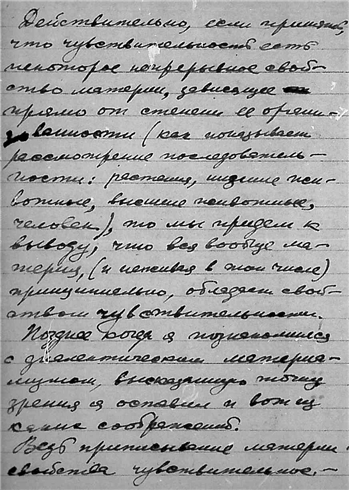 Действительно, если принять,
что чувствительность есть
некоторое непрерывное свой-
ство материи, зависящее
прямо от степени ее органи-
зованности (как показывает
рассмотрение последователь-
ности: растения, низшие жи-
вотные, высшие животные,
человек), то мы придем к
выводу, что вся вообще ма-
терия, (и неживая в том числе)
принципиально, обладает свой-
ством чувствительности.
Позднее когда я познакомился
с диалектическим материа-
лизмом, высказанную точку
зрения я оставил и вот из
каких соображений.
Ведь приписывание материи
свойства чувствительнос.-